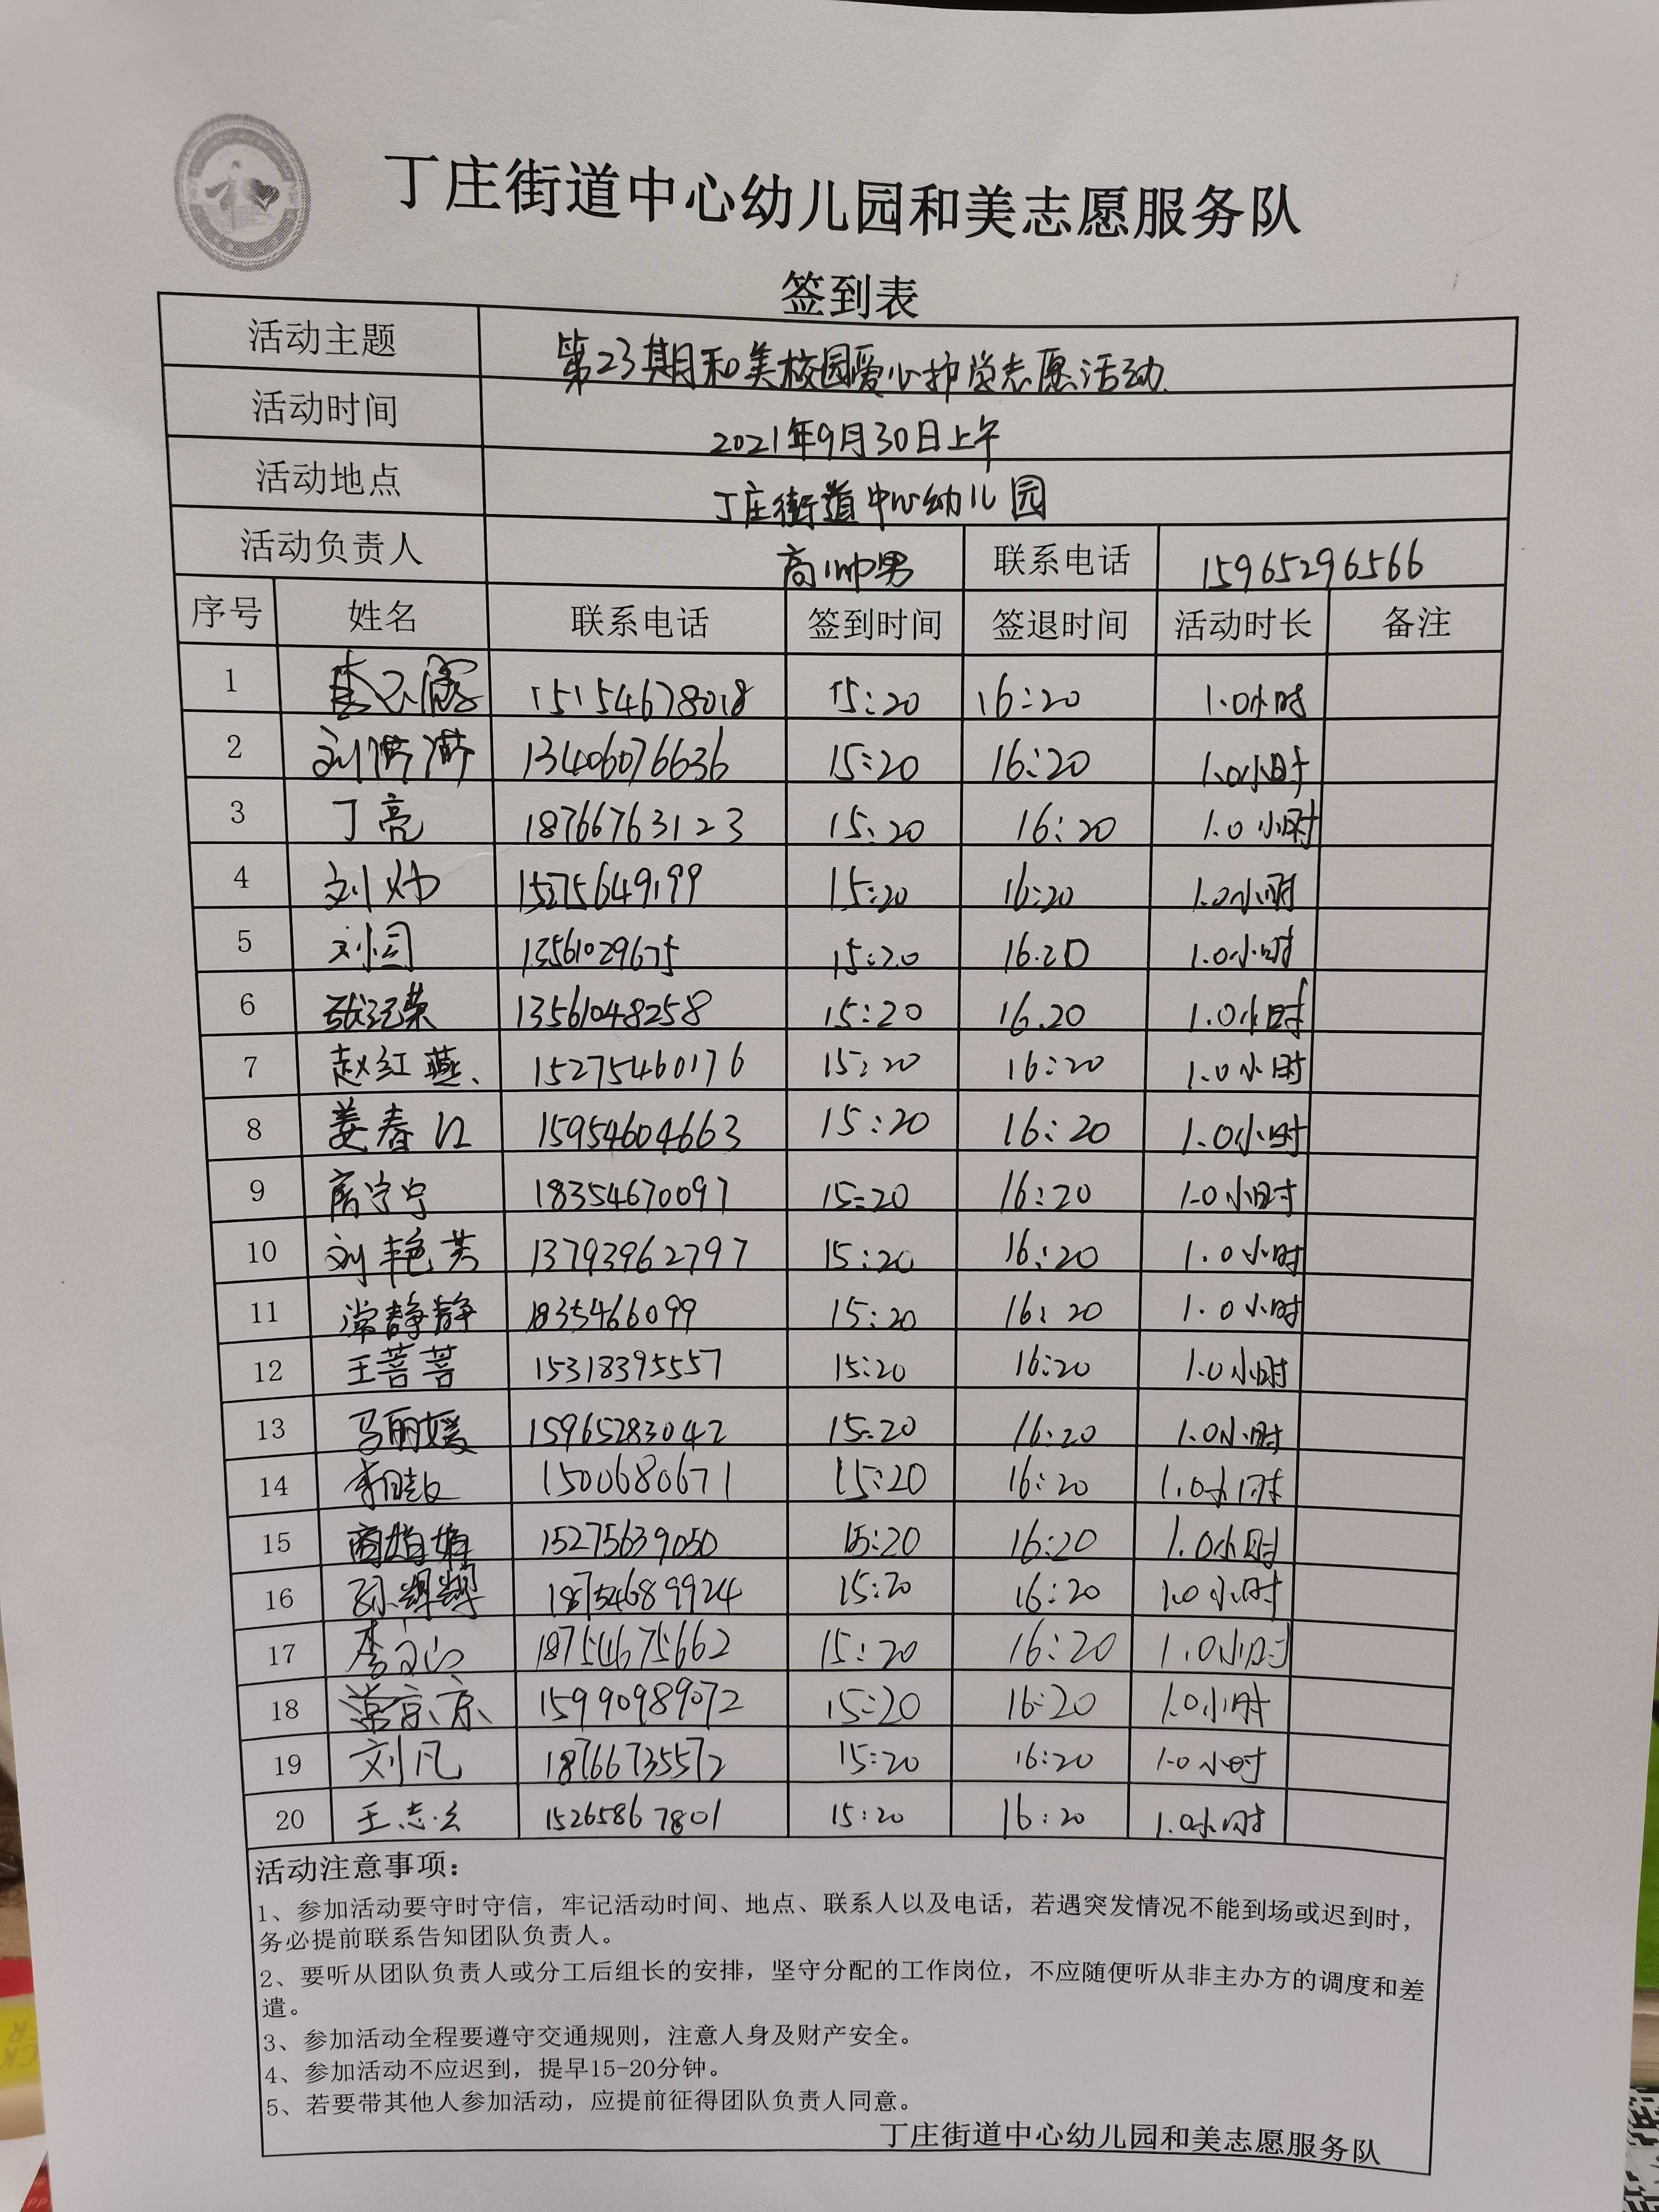 丁庄街道中心幼儿园和美志愿服务队
签到表
活动主题 第23期和美校园爱心护学志愿活动
活动时间 2021年9月30日上午
活动地点 丁庄街道中心幼儿园
活动负责人 高帅男 联系电话 15965296566
序号 姓名 联系电话 签到时间 签退时间 活动时长 备注
1 15154678018 15:20 16:20 1.0小时
2 刘 13406076636 15:20 16:20 1.0小时
3 丁亮 18766763123 15:20 16:20 1.0小时
4 刘炜 15275649199 15:20 16:20 1.0小时
5 刘 13561029675 15:20 16.20 1.0小时
6 张 荣 13561048258 15:20 16.20 1.0小时
7 赵红燕、 15275460176 15:20 16:20 1.0小时
8 姜春江 15954604663 15:20 16:20 1.0小时
9 宁宁 18354670097 15:20 16:20 1.0小时
10 刘艳芳 13793962797 15:20 16:20 1.0小时
11 常静静 1835466099 15:20 16:20 1.0小时
12 王菩菩 15318395557 15:20 16:20 1.0小时
13 马丽媛 15965283042 15:20 16:20 1.0小时
14 李晓 1500680671 15:20 16:20 1.0小时
15 商娟娟 15275639050 15:20 16:20 1.0小时
16 孙辉辉 18754689924 15:20 16:20 1.0小时
17 李 18754675662 15:20 16:20 1.0小时
18 常京京 15990989072 15:20 16:20 1.0小时
19 刘凡 18766735572 15:20 16:20 1.0小时
20 王志云 15265867801 15:20 16:20 1.0小时
活动注意事项：
1、参加活动要守时守信，牢记活动时间、地点、联系人以及电话，若遇突发情况不能到场或迟到时，
务必提前联系告知团队负责人。
2、要听从团队负责人或分工后组长的安排，坚守分配的工作岗位，不应随便听从非主办方的调度和差
遣。
3、参加活动全程要遵守交通规则，注意人身及财产安全。
4、参加活动不应迟到，提早15-20分钟。
5、若要带其他人参加活动，应提前征得团队负责人同意。
丁庄街道中心幼儿园和美志愿服务队